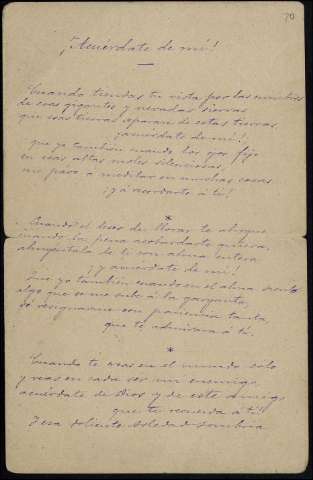 70
¡Acuérdate de mí!
Cuando tiendas tu vista por las cumbres
de esas gigantes y nevadas sierras
que esas tierras separan de estas tierras,
¡acuérdate de mí!;
que yo también cuando los ojos fijo
en esas altas moles silenciosas,
me paro a meditar en muchas cosas
¡y á recordarte á tí!
*
Cuando el deseo de llorar te ahogue
cuando la pena acobardarte quiera,
de ti con alma entera
¡y acuérdate de mí!
Que yo también cuando en el alma siento
algo que se me sube á la garganta,
sé resignarme con paciencia tanta,
que te admirara á tí.
*
Cuando te veas en el mundo solo
y veas en cada ser un enemigo,
acuérdate de Dios y de este amigo
que te recuerda á tí!
Y esa doliente soledad sombría